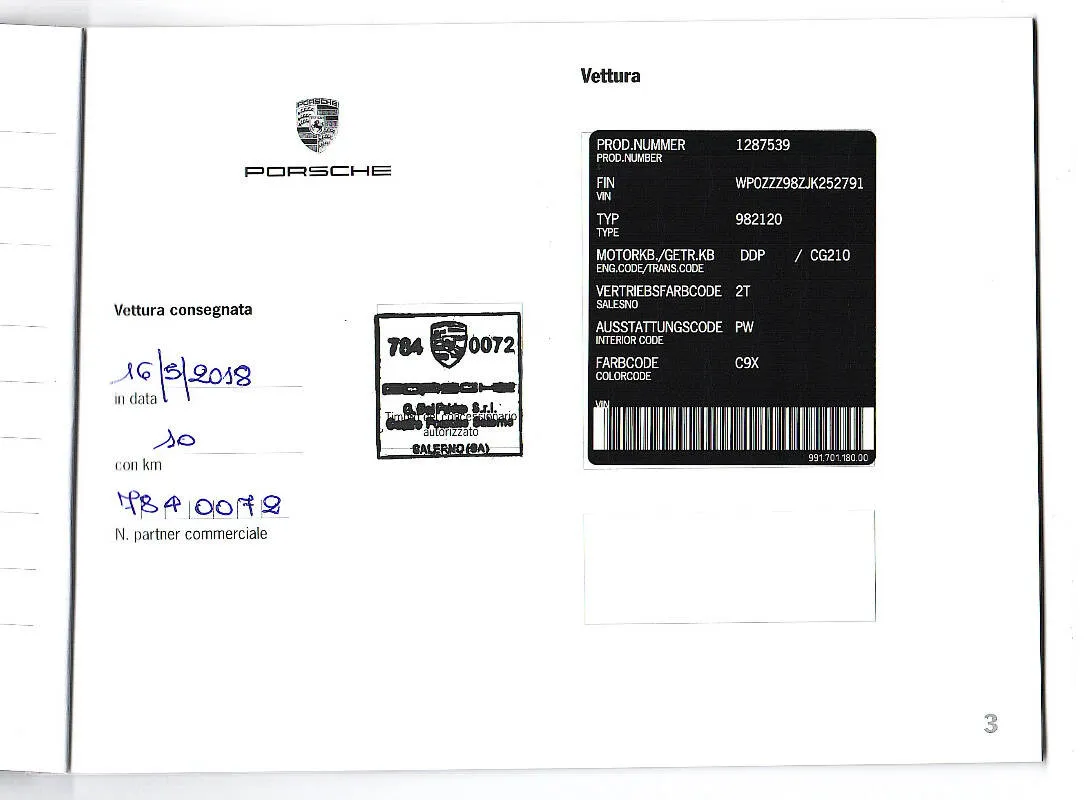 PORSCHE
PORSCHE
Vettura consegnata
16/5/2018
in data
10
con km
784 0072
N. partner commerciale
784 0072
PORSCHE
S.r.l.
Centro Porsche Salerno
autorizzato
SALERNO (SA)
Vettura
PROD.NUMMER 1287539
PROD.NUMBER
FIN WP0ZZZ98ZJK252791
VIN
TYP 982120
TYPE
MOTORKB./GETR.KB DDP / CG210
ENG.CODE/TRANS.CODE
VERTRIEBSFARBCODE 2T
SALESNO
AUSSTATTUNGSCODE PW
INTERIOR CODE
FARBCODE C9X
COLORCODE
VIN
991.701.180.00
3